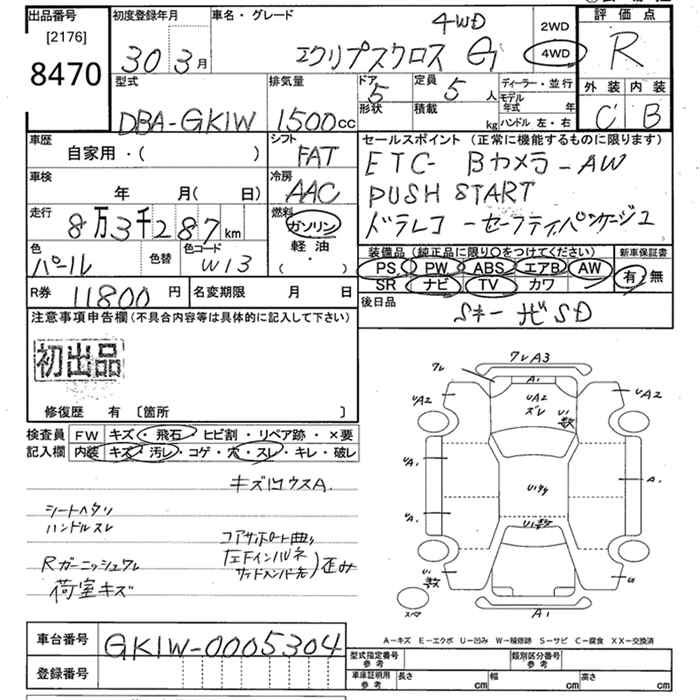 出品番号
[2176]
8470
初度登録年月
30 3月
車名・グレード
4WD
エクリプスクロス G
2WD
4WD
評価点
R
外装 内装
C B
型式
DBA-GK1W
排気量
1500cc
ドア 5
形状
定員 5人
積載 kg
ディーラー・並行
モデル年式 年
ハンドル 左・右
車歴
自家用・( )
シフト
FAT
車検
年 月(日)
冷房
AAC
走行
8万3千287km
燃料
ガソリン
軽油
( ・ )
色
パール
色替
色コード
W13
セールスポイント (正常に機能するものに限ります)
ETC- Bカメラ-AW
PUSH START
ドラレコ-セーフティパッケージ
装備品(純正品に限り〇をつけてください)
PS PW ABS エアB AW
SR ナビ TV カワ
新車保証書
有 無
R券 11800円
名変期限 月 日
後日品
Sキー ナビSD
注意事項申告欄(不具合内容等は具体的に記入して下さい)
初出品
修復歴 有 〔箇所 〕
検査員記入欄
FW キズ・飛石・ヒビ割・リペア跡・×要
内装 キズ・汚レ・コゲ・穴・スレ・キレ・破レ
シートヘタリ
ハンドルスレ
Rガーニッシュワレ
荷室キズ
コアサポート曲り
歪み
ワレ
ワレA3
A1
UA2
UA2
ズレ
UA2
UA1
A1
UA1
スペア
A1
A-キズ E-エクボ U-凹み W-補修跡 S-サビ C-腐食 XX-交換済
車台番号
GK1W-0005304
登録番号
型式指定番号
参考
類別区分番号
参考
車庫証明用
参考
長さ cm
幅 cm
高さ cm